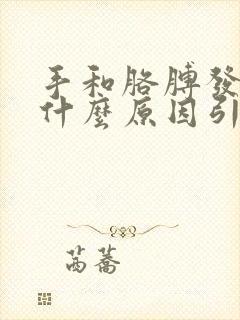 手和胳膊發
什麼原因引
茵蕃